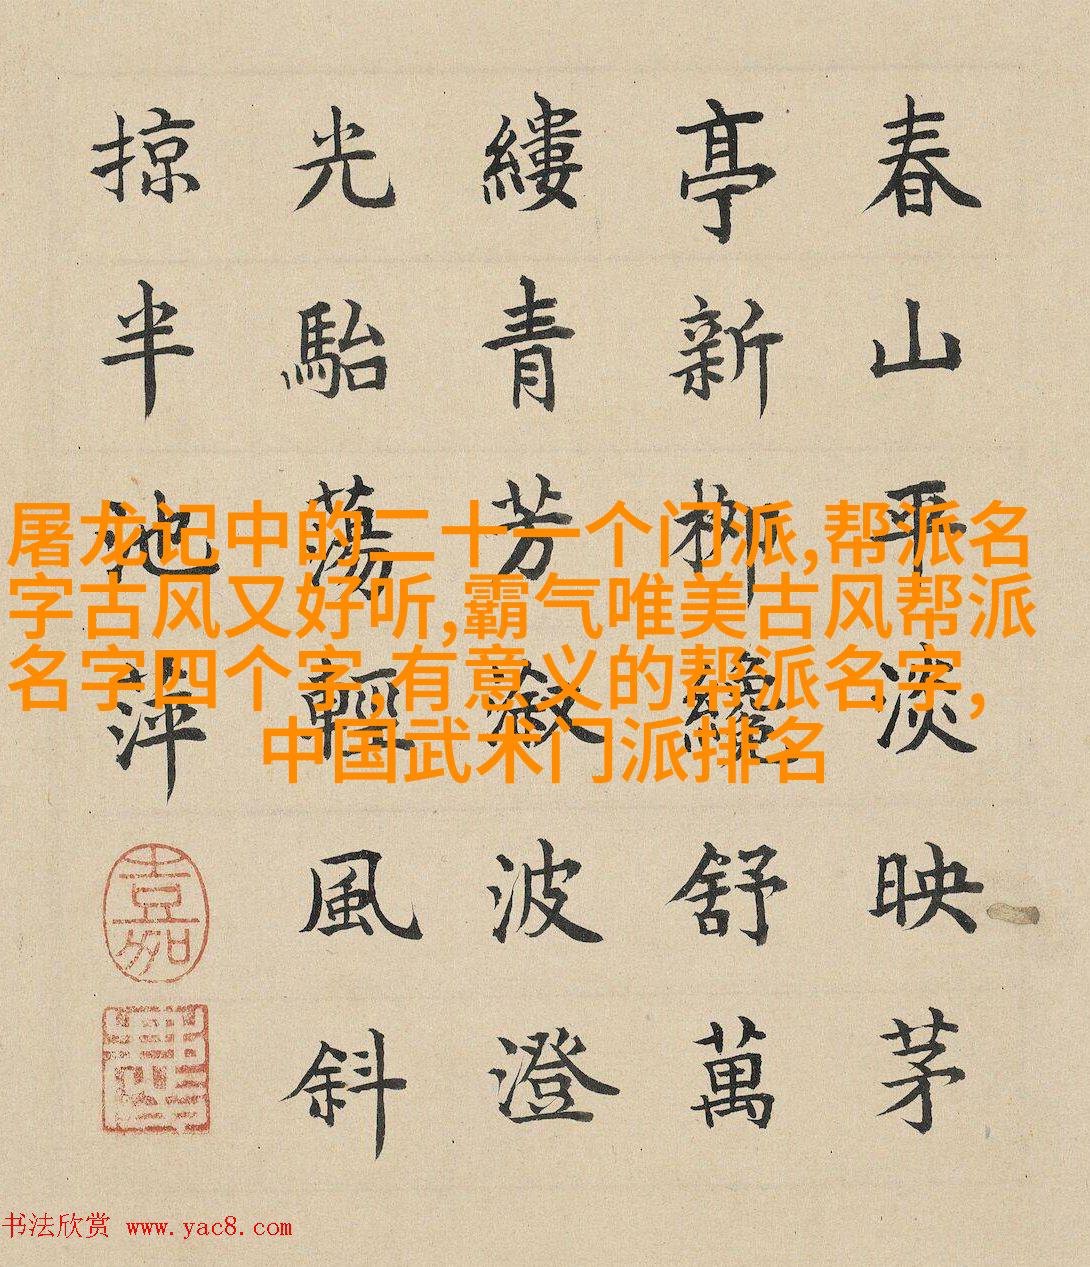 春山平淡映茅
亭新柳纔舒萬
縷青芳波澄
光駘蕩輕風斜
掠半池萍
嘉
屠龙记中的二十一个门派,帮派名
字古风又好听,霸气唯美古风帮派
名字四个字,有意义的帮派名字,
中国武术门派排名
书法欣赏 www.yac8.com